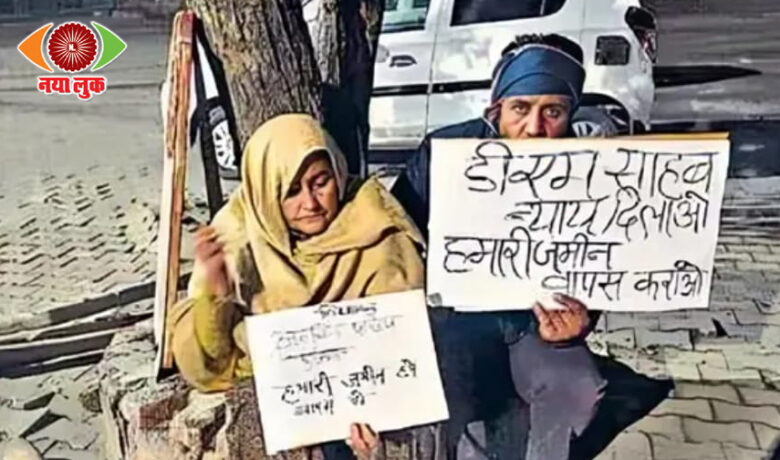 नया लुक
डीएम साहब
न्याय दिलाओ
हमारी जमीन
वापस कराओ
हमारी जमीन हमे
वापस दो